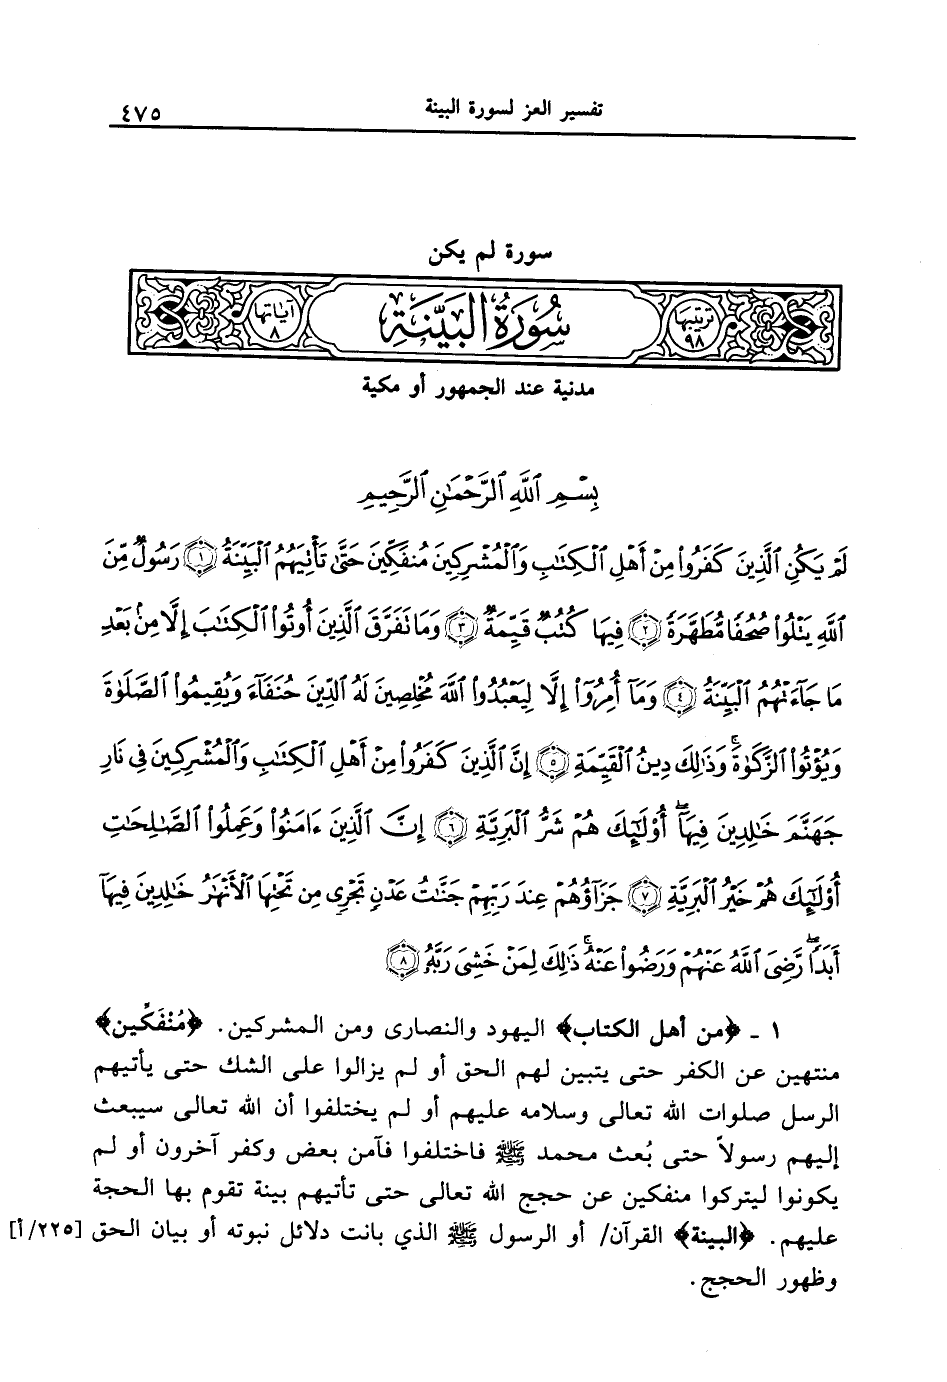 تفسير العز لسورة البينة
٤٧٥
سورة لم يكن
ترتيبها ٩٨ سُورَةُ البَيِّنَةِ آياتها ٨
مدنية عند الجمهور أو مكية
بِسْمِ ٱللَّهِ ٱلرَّحْمَٰنِ ٱلرَّحِيمِ
لَمْ يَكُنِ ٱلَّذِينَ كَفَرُوا۟ مِنْ أَهْلِ ٱلْكِتَٰبِ وَٱلْمُشْرِكِينَ مُنفَكِّينَ حَتَّىٰ تَأْتِيَهُمُ ٱلْبَيِّنَةُ ۝١ رَسُولٌ مِّنَ
ٱللَّهِ يَتْلُوا۟ صُحُفًا مُّطَهَّرَةً ۝٢ فِيهَا كُتُبٌ قَيِّمَةٌ ۝٣ وَمَا تَفَرَّقَ ٱلَّذِينَ أُوتُوا۟ ٱلْكِتَٰبَ إِلَّا مِنۢ بَعْدِ
مَا جَآءَتْهُمُ ٱلْبَيِّنَةُ ۝٤ وَمَآ أُمِرُوٓا۟ إِلَّا لِيَعْبُدُوا۟ ٱللَّهَ مُخْلِصِينَ لَهُ ٱلدِّينَ حُنَفَآءَ وَيُقِيمُوا۟ ٱلصَّلَوٰةَ
وَيُؤْتُوا۟ ٱلزَّكَوٰةَ ۚ وَذَٰلِكَ دِينُ ٱلْقَيِّمَةِ ۝٥ إِنَّ ٱلَّذِينَ كَفَرُوا۟ مِنْ أَهْلِ ٱلْكِتَٰبِ وَٱلْمُشْرِكِينَ فِى نَارِ
جَهَنَّمَ خَٰلِدِينَ فِيهَآ ۚ أُو۟لَٰٓئِكَ هُمْ شَرُّ ٱلْبَرِيَّةِ ۝٦ إِنَّ ٱلَّذِينَ ءَامَنُوا۟ وَعَمِلُوا۟ ٱلصَّٰلِحَٰتِ
أُو۟لَٰٓئِكَ هُمْ خَيْرُ ٱلْبَرِيَّةِ ۝٧ جَزَآؤُهُمْ عِندَ رَبِّهِمْ جَنَّٰتُ عَدْنٍ تَجْرِى مِن تَحْتِهَا ٱلْأَنْهَٰرُ خَٰلِدِينَ فِيهَآ
أَبَدًا ۖ رَّضِىَ ٱللَّهُ عَنْهُمْ وَرَضُوا۟ عَنْهُ ۚ ذَٰلِكَ لِمَنْ خَشِىَ رَبَّهُۥ ۝٨
١ ـ ﴿من أهل الكتاب﴾ اليهود والنصارى ومن المشركين. ﴿مُنْفَكِّين﴾
منتهين عن الكفر حتى يتبين لهم الحق أو لم يزالوا على الشك حتى يأتيهم
الرسل صلوات الله تعالى وسلامه عليهم أو لم يختلفوا أن الله تعالى سيبعث
إليهم رسولاً حتى بُعث محمد ﷺ فاختلفوا فآمن بعض وكفر آخرون أو لم
يكونوا ليتركوا منفكين عن حجج الله تعالى حتى تأتيهم بينة تقوم بها الحجة
عليهم. ﴿البينة﴾ القرآن/ أو الرسول ﷺ الذي بانت دلائل نبوته أو بيان الحق [٢٢٥/أ]
وظهور الحجج.